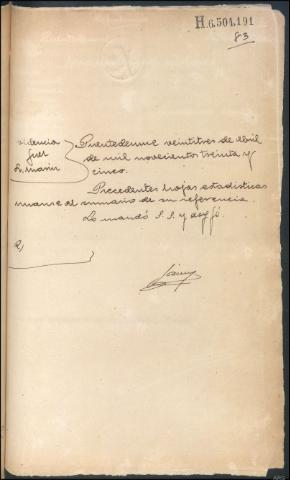 H.6.504.191
83
videncia
Juez
Sr. Marin
Puentedeume veintitres de Abril
de mil novecientos treinta y
cinco.
Precedentes hojas estadisticas
unanse al sumario de su referencia.
Lo mandó S. S. y doy fé.